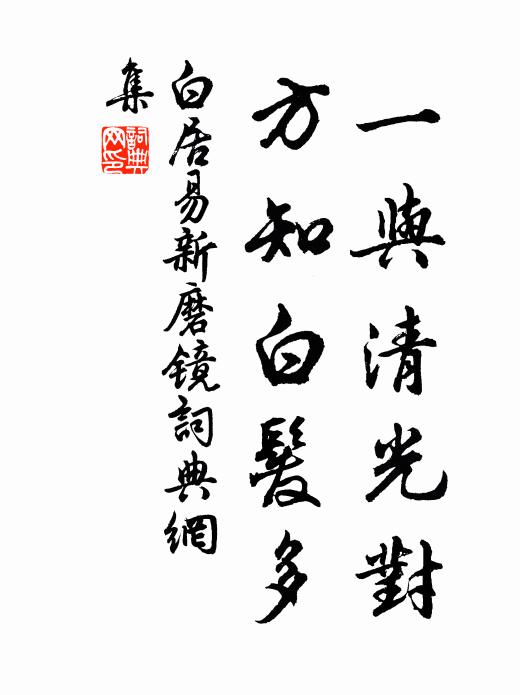 一與清光對
方知白髮多
白居易新磨镜詞典網
集
詞典網印